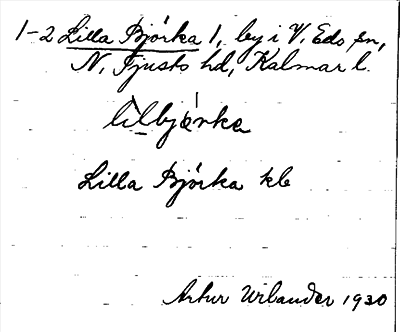 1-2 Lilla Björka 1, by i V. Eds sn,
N. Tjusts hd, Kalmar l.
lilbjǫ̀rka
Lilla Björka kb
Artur Urbander 1930